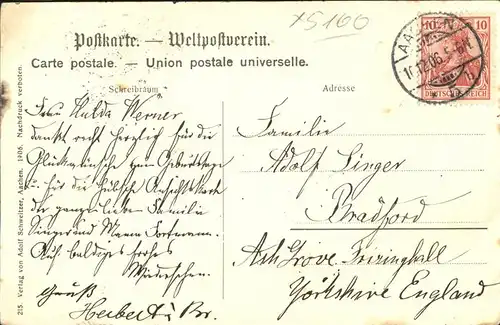 x5100
Postkarte. — Weltpostverein.
Carte postale. — Union postale universelle.
Schreibraum
Adresse
AACHEN
10.12.06. 5-6N.
10 10
DEUTSCHES REICH
Frau Hulda Werner
dankt recht herzlich für die
Glückwünsche zum Geburtstage
u. für die hübsche Ansichtskarte
der ganzen lieben Familie
Singer und Mama
Auf baldiges frohes
Wiedersehen.
Gruß
Herbert
Familie
Adolf Singer
Bradford
Ash Grove. Frizinghall
Yorkshire England
215. Verlag von Adolf Schweitzer, Aachen. 1906. Nachdruck verboten.